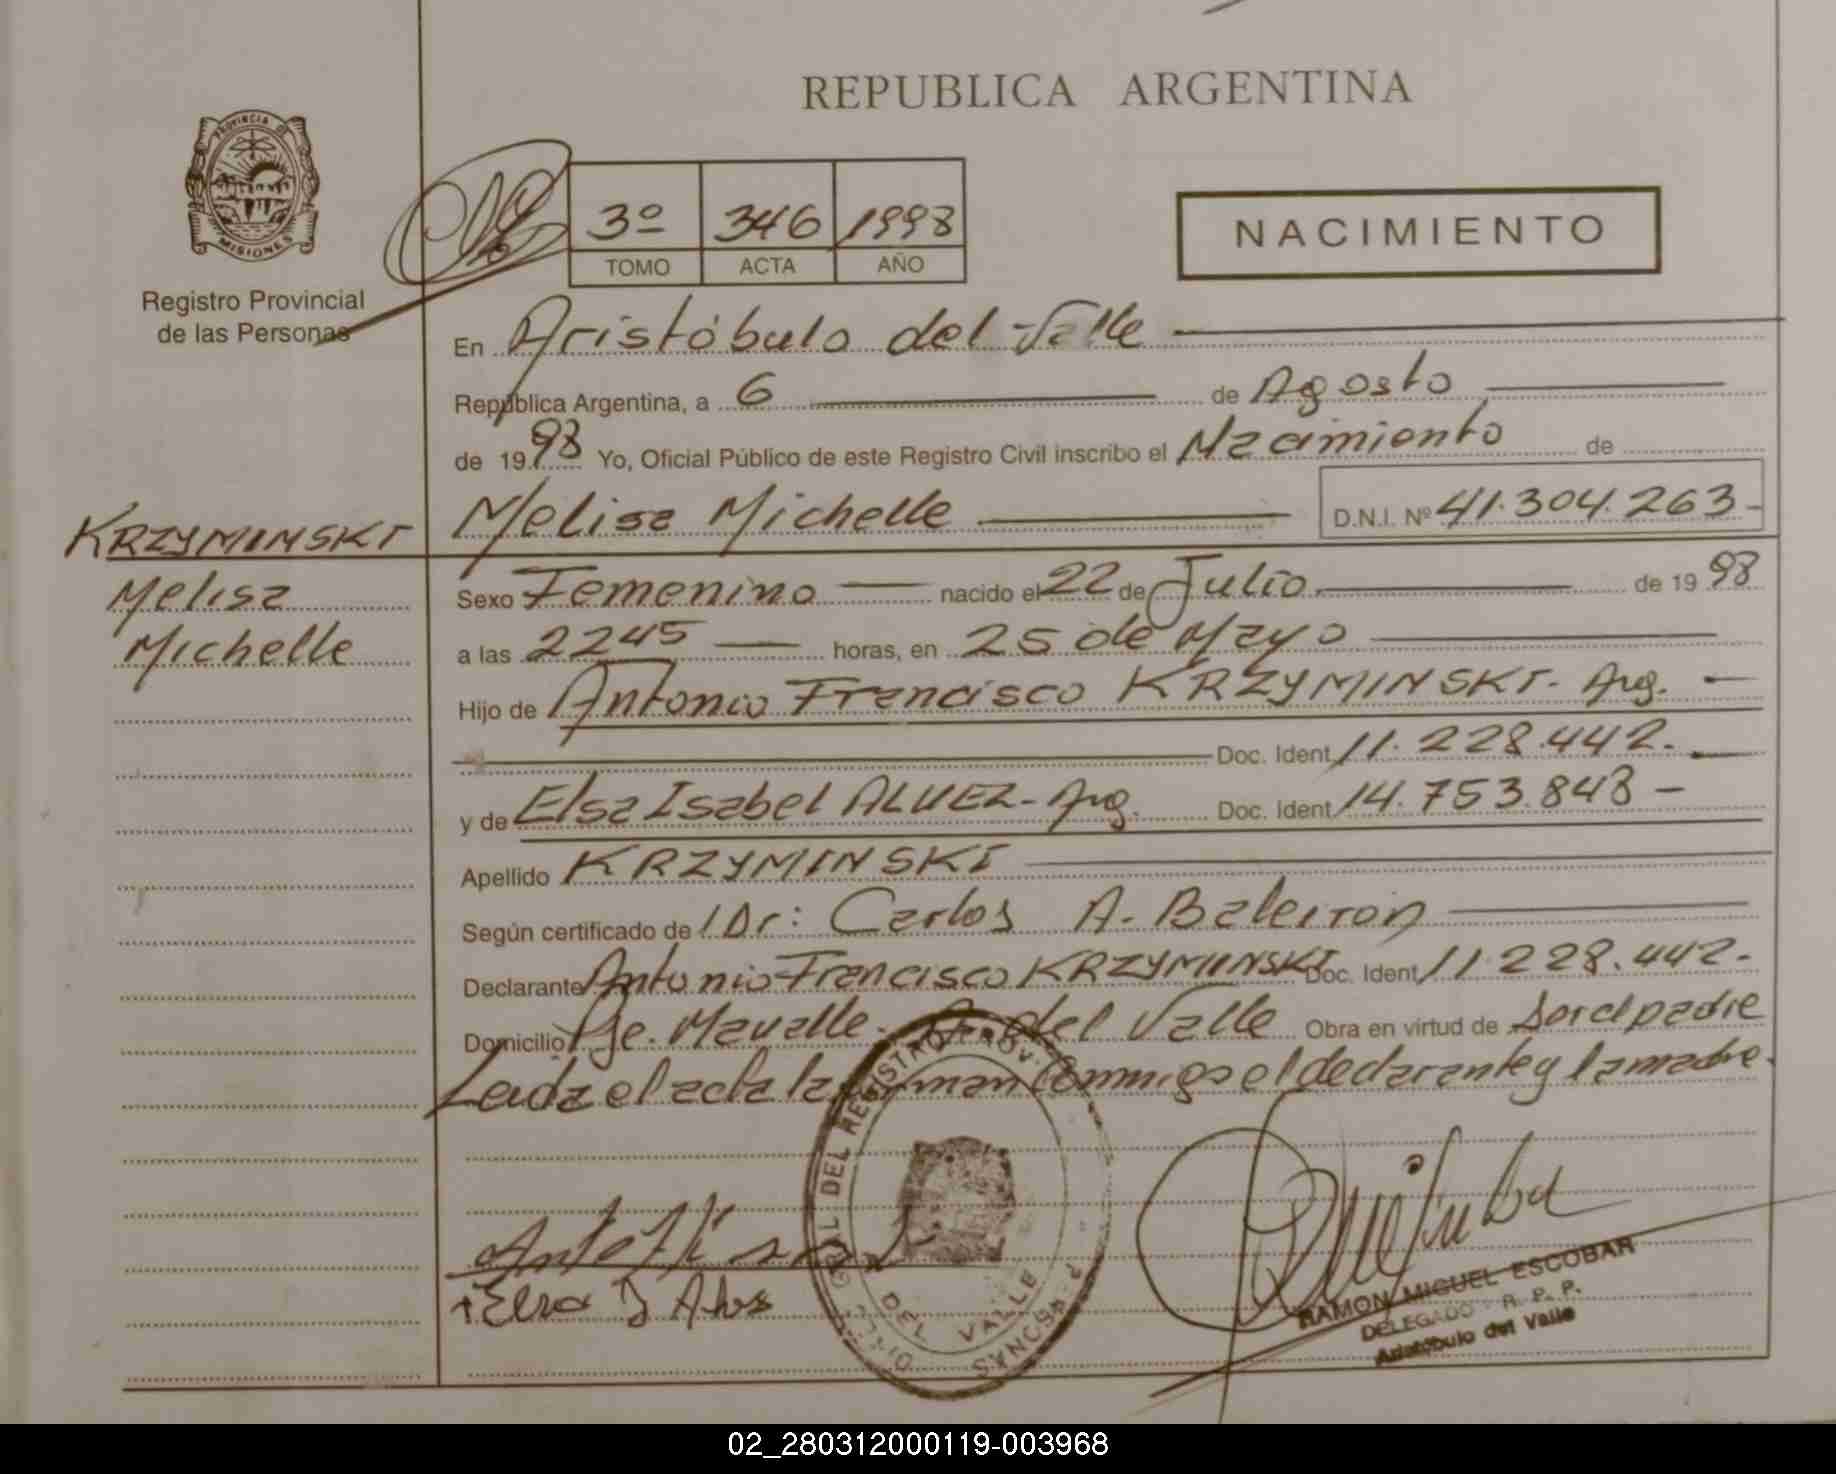 REPUBLICA ARGENTINA
PROVINCIA DE
MISIONES
Registro Provincial
de las Personas
3º 346 1998
TOMO ACTA AÑO
NACIMIENTO
En Aristóbulo del Valle
República Argentina, a 6 de Agosto
de 1998 Yo, Oficial Público de este Registro Civil inscribo el Nacimiento de
Melisa Michelle D.N.I. Nº 41.304.263-
KRZYMINSKI
Melisa
Michelle
Sexo Femenino nacido el 22 de Julio de 1998
a las 2245 horas, en 25 de Mayo
Hijo de Antonio Francisco KRZYMINSKI- Arg.
Doc. Ident. 11.228.442.
y de Elsa Isabel ALVEZ- Arg. Doc. Ident. 14.753.843-
Apellido KRZYMINSKI
Según certificado de Dr: Carlos A.
Declarante Antonio Francisco KRZYMINSKI Doc. Ident. 11.228.442.
Domicilio Pje. Mavalle. A. del Valle Obra en virtud de Ser el padre
Leida el acta la firman conmigo el declarante y la madre.
DEL REGISTRO PROV.
DEL VALLE
RAMON MIGUEL ESCOBAR
DELEGADO R. P. P.
Aristóbulo del Valle
02_280312000119-003968